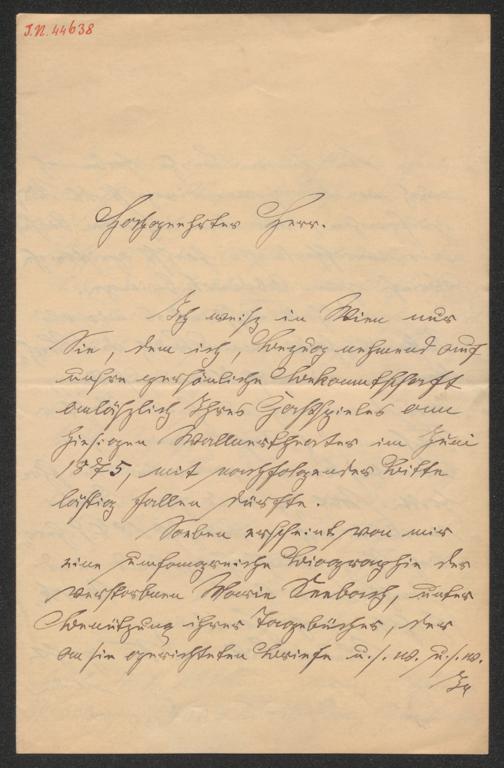 J.N. 44638
Hochgeehrter Herr.
Ich weiß in Wien nur
Sie, dem ich, Bezug nehmend auf
unsre persönliche Bekanntschaft
anläßlich Ihres Gastspieles am
hiesigen Wallnertheater im Juni
1875, mit nachfolgender Bitte
lästig fallen dürfte.
Soeben erscheint von mir
eine umfangreiche Biographie der
verstorbnen Marie Seebach, unter
Benützung ihrer Tagebücher, der
an sie gerichteten Briefe u.s.w. u.s.w.